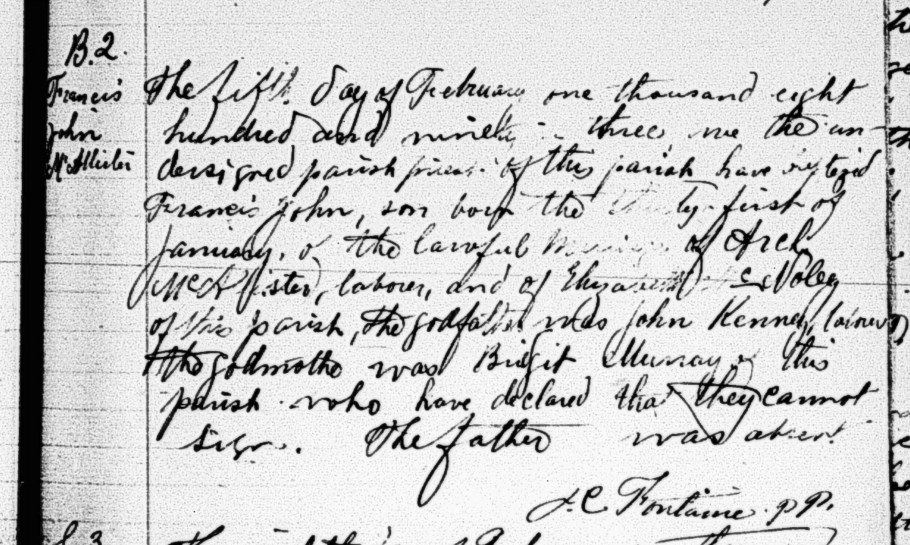 B.2.
Francis
John
McAllister
The fifth day of February one thousand eight
hundred and ninety three we the un-
dersigned parish priest of this parish have baptized
Francis John, son born the thirty-first of
January, of the lawful marriage of Arch.
McAllister, laborer, and of Elizabeth
of this parish, the godfather was John Kenney, laborer,
the godmother was Bridgit Murray of this
parish who have declared that they cannot
sign. The father was absent
J.C Fontaine p.p.